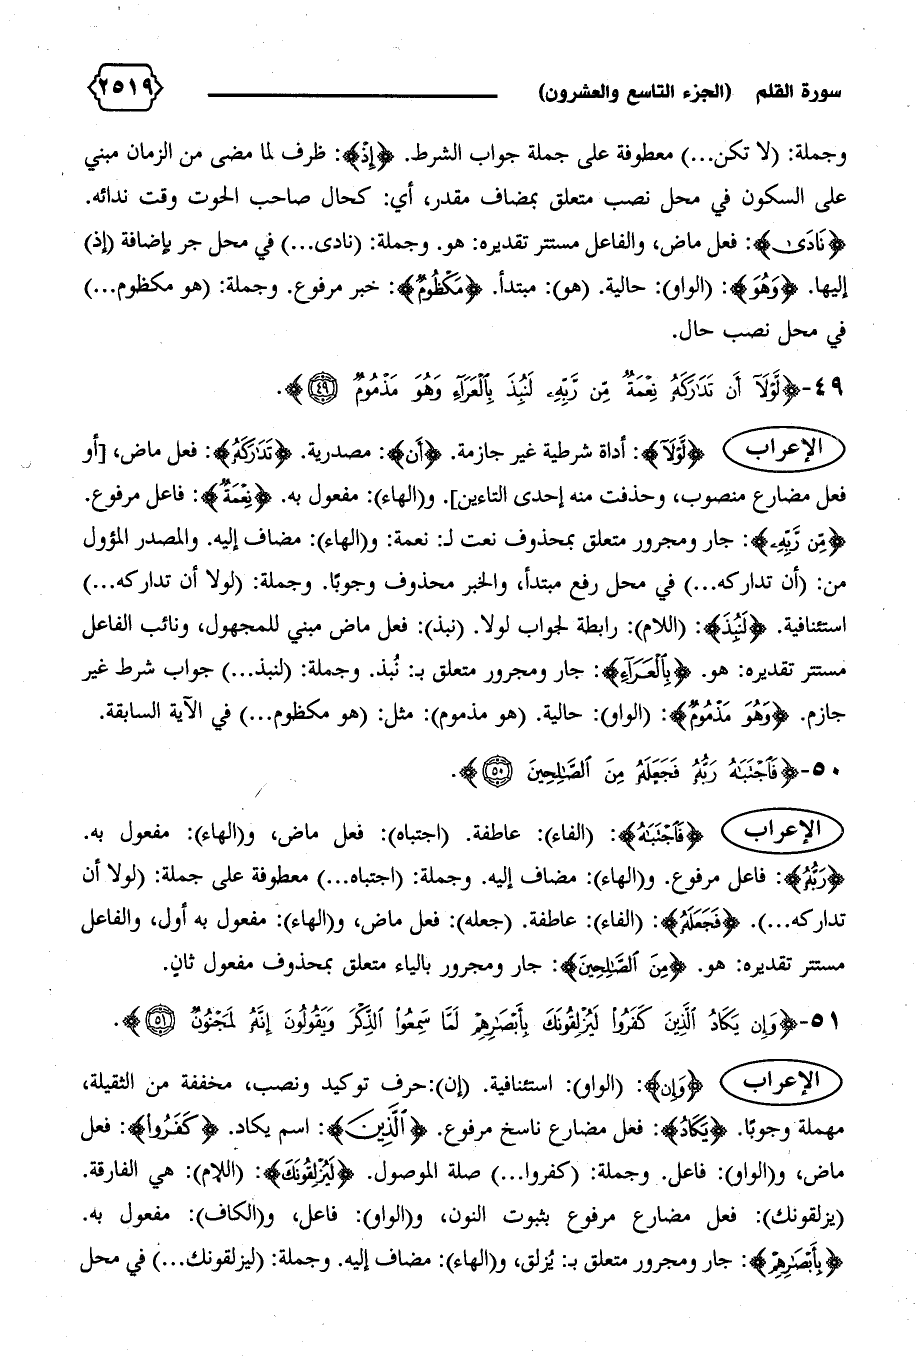 سورة القلم (الجزء التاسع والعشرون) ٢٥١٩
وجملة: (لا تكن...) معطوفة على جملة جواب الشرط. ﴿إِذْ﴾: ظرف لما مضى من الزمان مبني
على السكون في محل نصب متعلق بمضاف مقدر، أي: كحال صاحب الحوت وقت ندائه.
﴿نَادَىٰ﴾: فعل ماض، والفاعل مستتر تقديره: هو. وجملة: (نادى...) في محل جر بإضافة (إذ)
إليها. ﴿وَهُوَ﴾: (الواو): حالية. (هو): مبتدأ. ﴿مَكْظُومٌ﴾: خبر مرفوع. وجملة: (هو مكظوم...)
في محل نصب حال.
٤٩-﴿لَّوْلَآ أَن تَدَٰرَكَهُۥ نِعْمَةٌ مِّن رَّبِّهِۦ لَنُبِذَ بِٱلْعَرَآءِ وَهُوَ مَذْمُومٌ ٤٩﴾.
الإعراب ﴿لَّوْلَآ﴾: أداة شرطية غير جازمة. ﴿أَن﴾: مصدرية. ﴿تَدَٰرَكَهُۥ﴾: فعل ماض، [أو
فعل مضارع منصوب، وحذفت منه إحدى التاءين]. و(الهاء): مفعول به. ﴿نِعْمَةٌ﴾: فاعل مرفوع.
﴿مِّن رَّبِّهِۦ﴾: جار ومجرور متعلق بمحذوف نعت لـ: نعمة: و(الهاء): مضاف إليه. والمصدر المؤول
من: (أن تداركه...) في محل رفع مبتدأ، والخبر محذوف وجوبًا. وجملة: (لولا أن تداركه...)
استئنافية. ﴿لَنُبِذَ﴾: (اللام): رابطة لجواب لولا. (نبذ): فعل ماض مبني للمجهول، ونائب الفاعل
مستتر تقديره: هو. ﴿بِٱلْعَرَآءِ﴾: جار ومجرور متعلق بـ: نُبذ. وجملة: (لنبذ...) جواب شرط غير
جازم. ﴿وَهُوَ مَذْمُومٌ﴾: (الواو): حالية. (هو مذموم): مثل: (هو مكظوم...) في الآية السابقة.
٥٠-﴿فَٱجْتَبَٰهُ رَبُّهُۥ فَجَعَلَهُۥ مِنَ ٱلصَّٰلِحِينَ ٥٠﴾.
الإعراب ﴿فَٱجْتَبَٰهُ﴾: (الفاء): عاطفة. (اجتباه): فعل ماض، و(الهاء): مفعول به.
﴿رَبُّهُۥ﴾: فاعل مرفوع. و(الهاء): مضاف إليه. وجملة: (اجتباه...) معطوفة على جملة: (لولا أن
تداركه...). ﴿فَجَعَلَهُۥ﴾: (الفاء): عاطفة. (جعله): فعل ماض، و(الهاء): مفعول به أول، والفاعل
مستتر تقديره: هو. ﴿مِنَ ٱلصَّٰلِحِينَ﴾: جار ومجرور بالياء متعلق بمحذوف مفعول ثانٍ.
٥١-﴿وَإِن يَكَادُ ٱلَّذِينَ كَفَرُوا۟ لَيُزْلِقُونَكَ بِأَبْصَٰرِهِمْ لَمَّا سَمِعُوا۟ ٱلذِّكْرَ وَيَقُولُونَ إِنَّهُۥ لَمَجْنُونٌ ٥١﴾.
الإعراب ﴿وَإِن﴾: (الواو): استئنافية. (إن):حرف توكيد ونصب، مخففة من الثقيلة،
مهملة وجوبًا. ﴿يَكَادُ﴾: فعل مضارع ناسخ مرفوع. ﴿ٱلَّذِينَ﴾: اسم يكاد. ﴿كَفَرُوا۟﴾: فعل
ماض، و(الواو): فاعل. وجملة: (كفروا...) صلة الموصول. ﴿لَيُزْلِقُونَكَ﴾: (اللام): هي الفارقة.
(يزلقونك): فعل مضارع مرفوع بثبوت النون، و(الواو): فاعل، و(الكاف): مفعول به.
﴿بِأَبْصَٰرِهِمْ﴾: جار ومجرور متعلق بـ: يُزلق، و(الهاء): مضاف إليه. وجملة: (ليزلقونك...) في محل